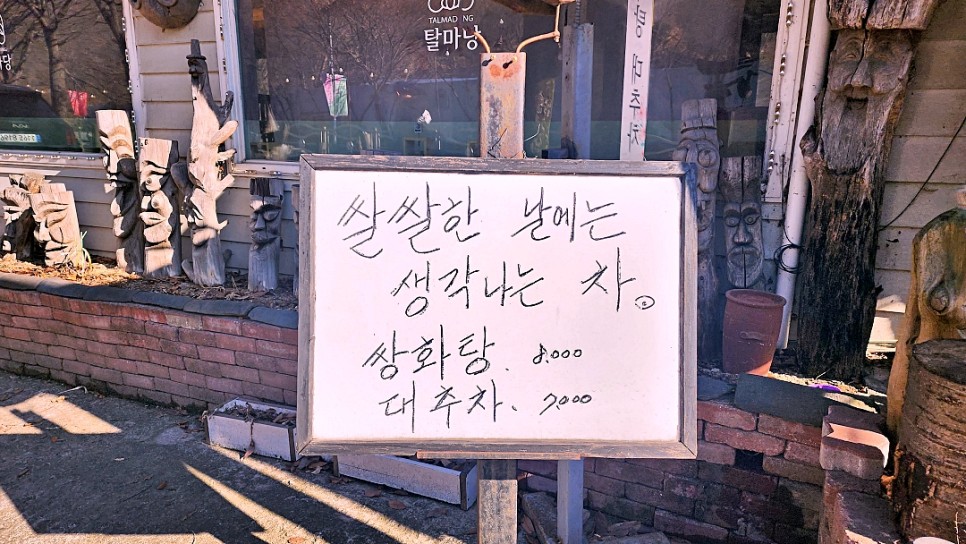 TALMAD NG
탈마낭
탕 대추차
쌀쌀한 날에는
생각나는 차.
쌍화탕. 8.000
대추차. 7.000